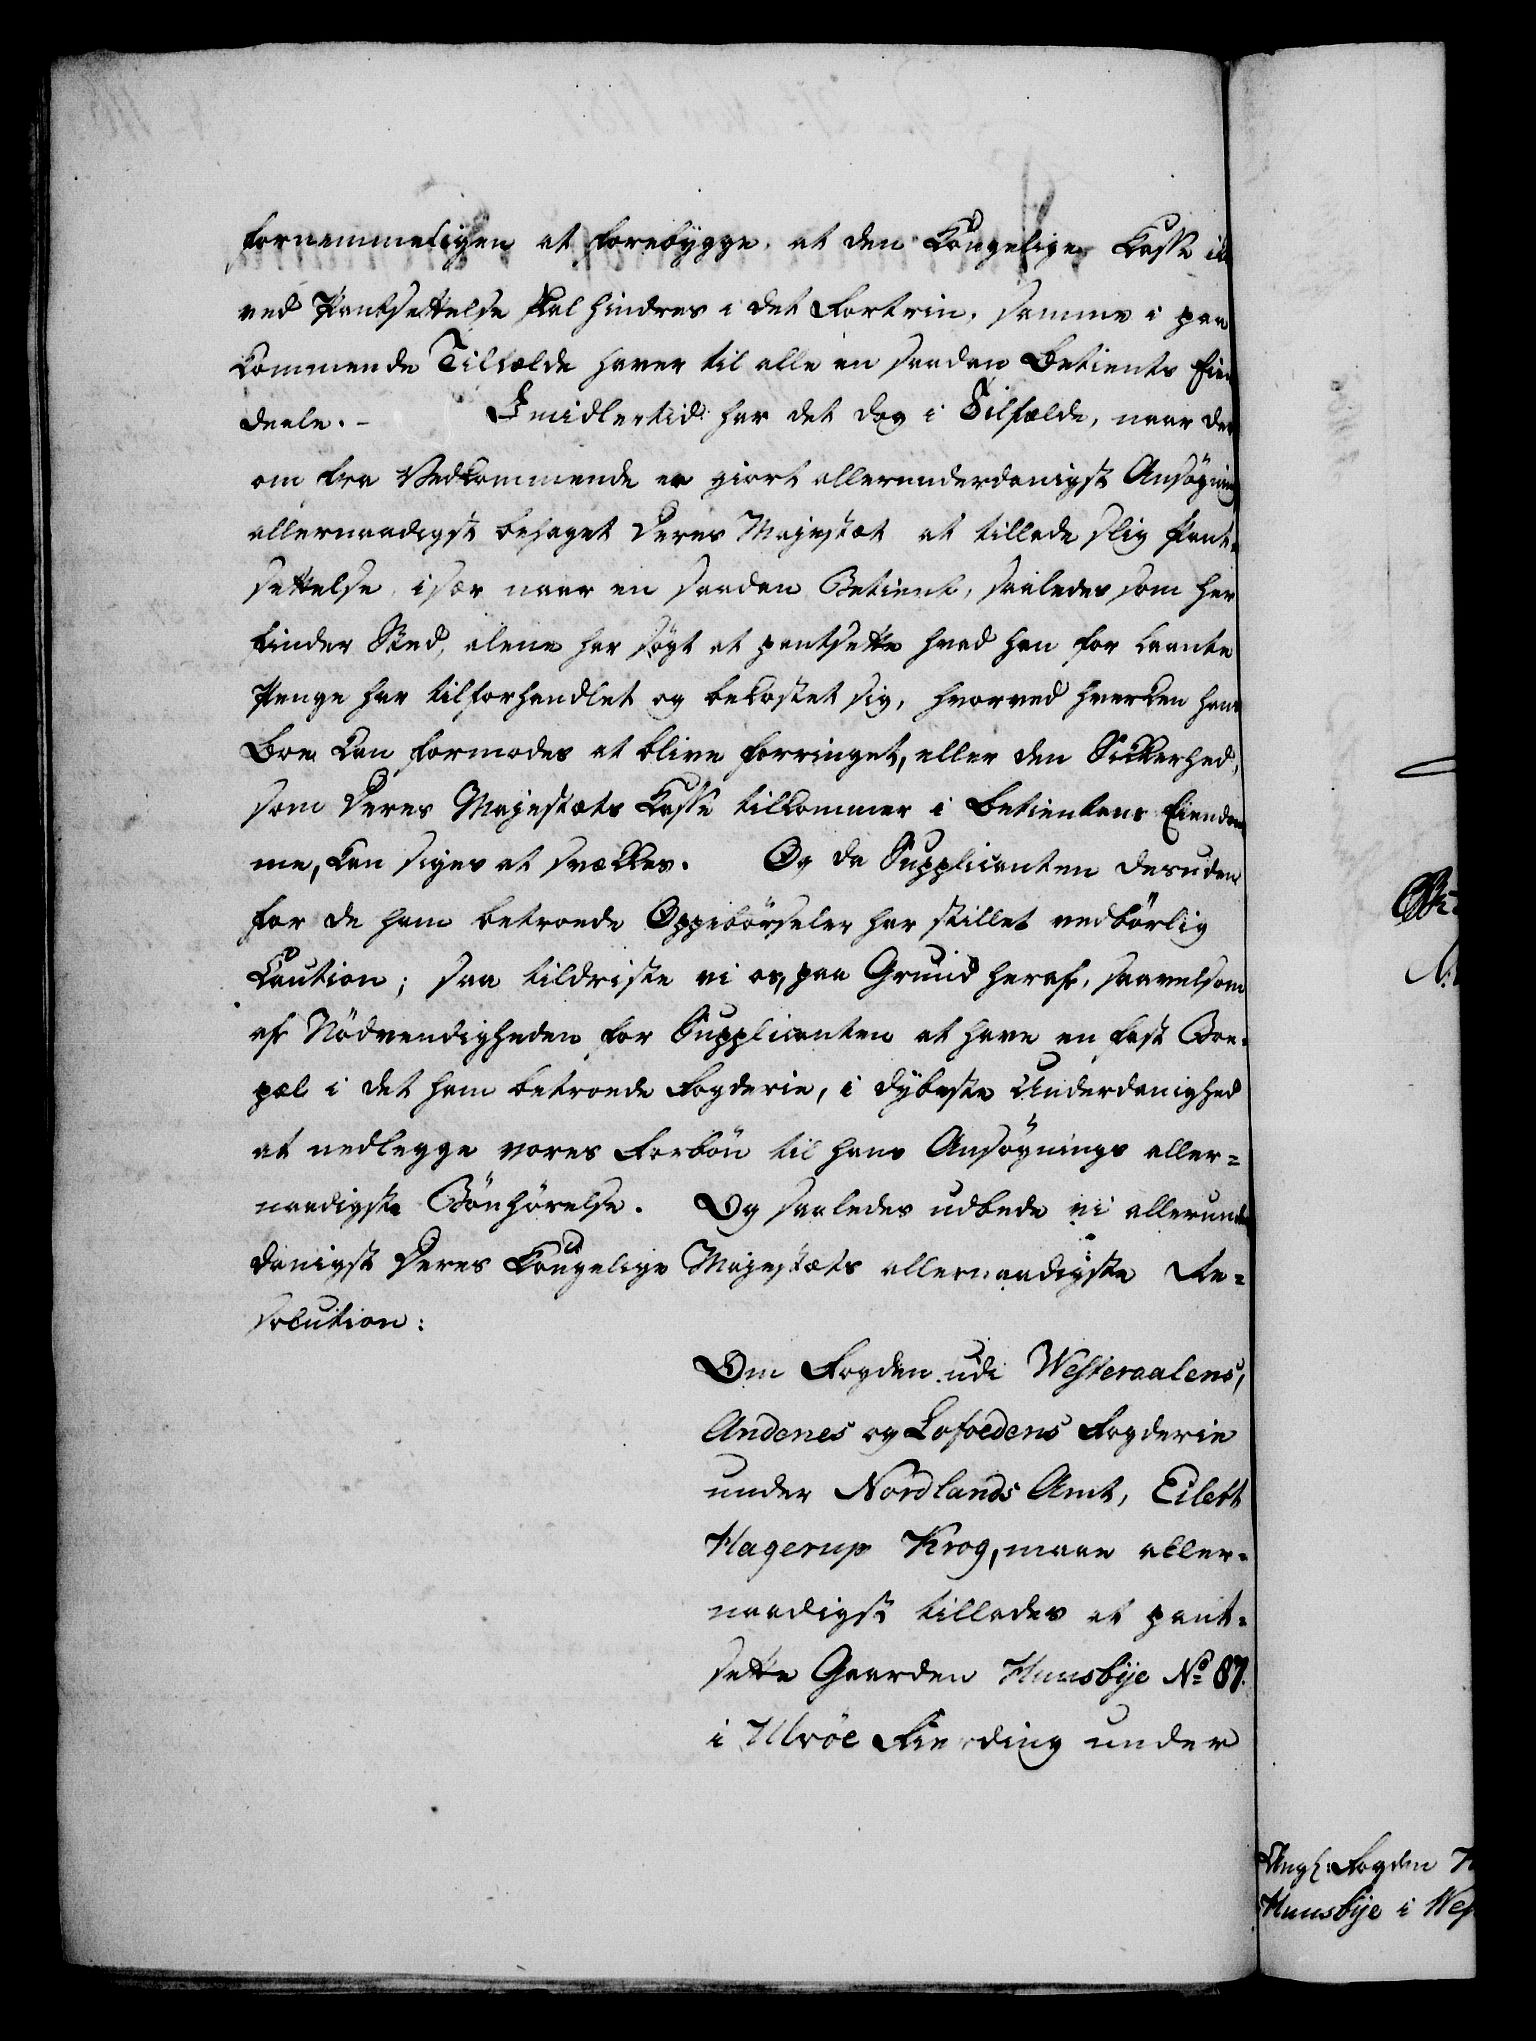 fornemmeligen at forebygge, at den Kongelige Kasse ik
ved Pantsettelse skal hindres i det Fortrin, samme i paa
kommende Tilfælde haver til alle en saadan Betients Eien
deele. – Imidlertid har det dog i Tilfælde, naar der
om fra Vedkommende er giort allerunderdanigst Ansøgning
allernaadigst behaget Deres Majestæt at tillade slig Pant-
settelse, især naar en saadan Betient, saaledes som her
finder Sted, alene har søgt at pantsette hvad han for laante
Penge har tilforhandlet og bekostet sig, hvorved hverken hans
Boe kan formodes at blive forringet, eller den Sikkerhed,
som Deres Majestæts Kasse tilkommer i Betientens Eiendom
me, kan siges at svækkes. Og da Supplicanten desuden
for de ham betroede Oppebørseler har stillet vedbørlig
Caution; saa tildriste vi os, paa Grund heraf, saavelsom
af Nødvendigheden for Supplicanten at have en fast Boe-
pæl i det ham betroede Fogderie, i dybeste Underdanighed
at nedlegge vores Forbøn til hans Ansøgnings aller=
naadigste Bønhørelse. Og saaledes udbede vi allerunder
danigst Deres Kongelige Majestæts allernaadigste Re-
solution:
Om Fogden udi Westeraalens,
Andenes og Lofoedens Fogderie
under Nordlands Amt, Eilert
Hagerup Krog, maae aller-
naadigst tillades at pant-
sette Gaarden Huusbye No 87.
i Ulvöe Fierding under
Angl: Fogden
Huusbye i Wes